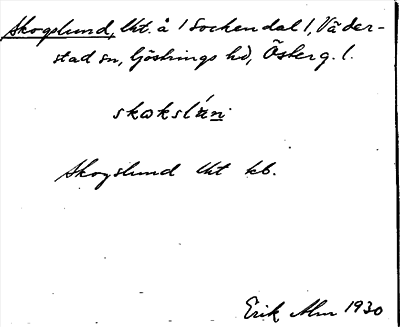 Skogslund, lht. å 1 Sockendal 1, Väder-
stad sn, Göstrings hd, Österg. l.
Skogslund lht kb.
Erik Alm 1930